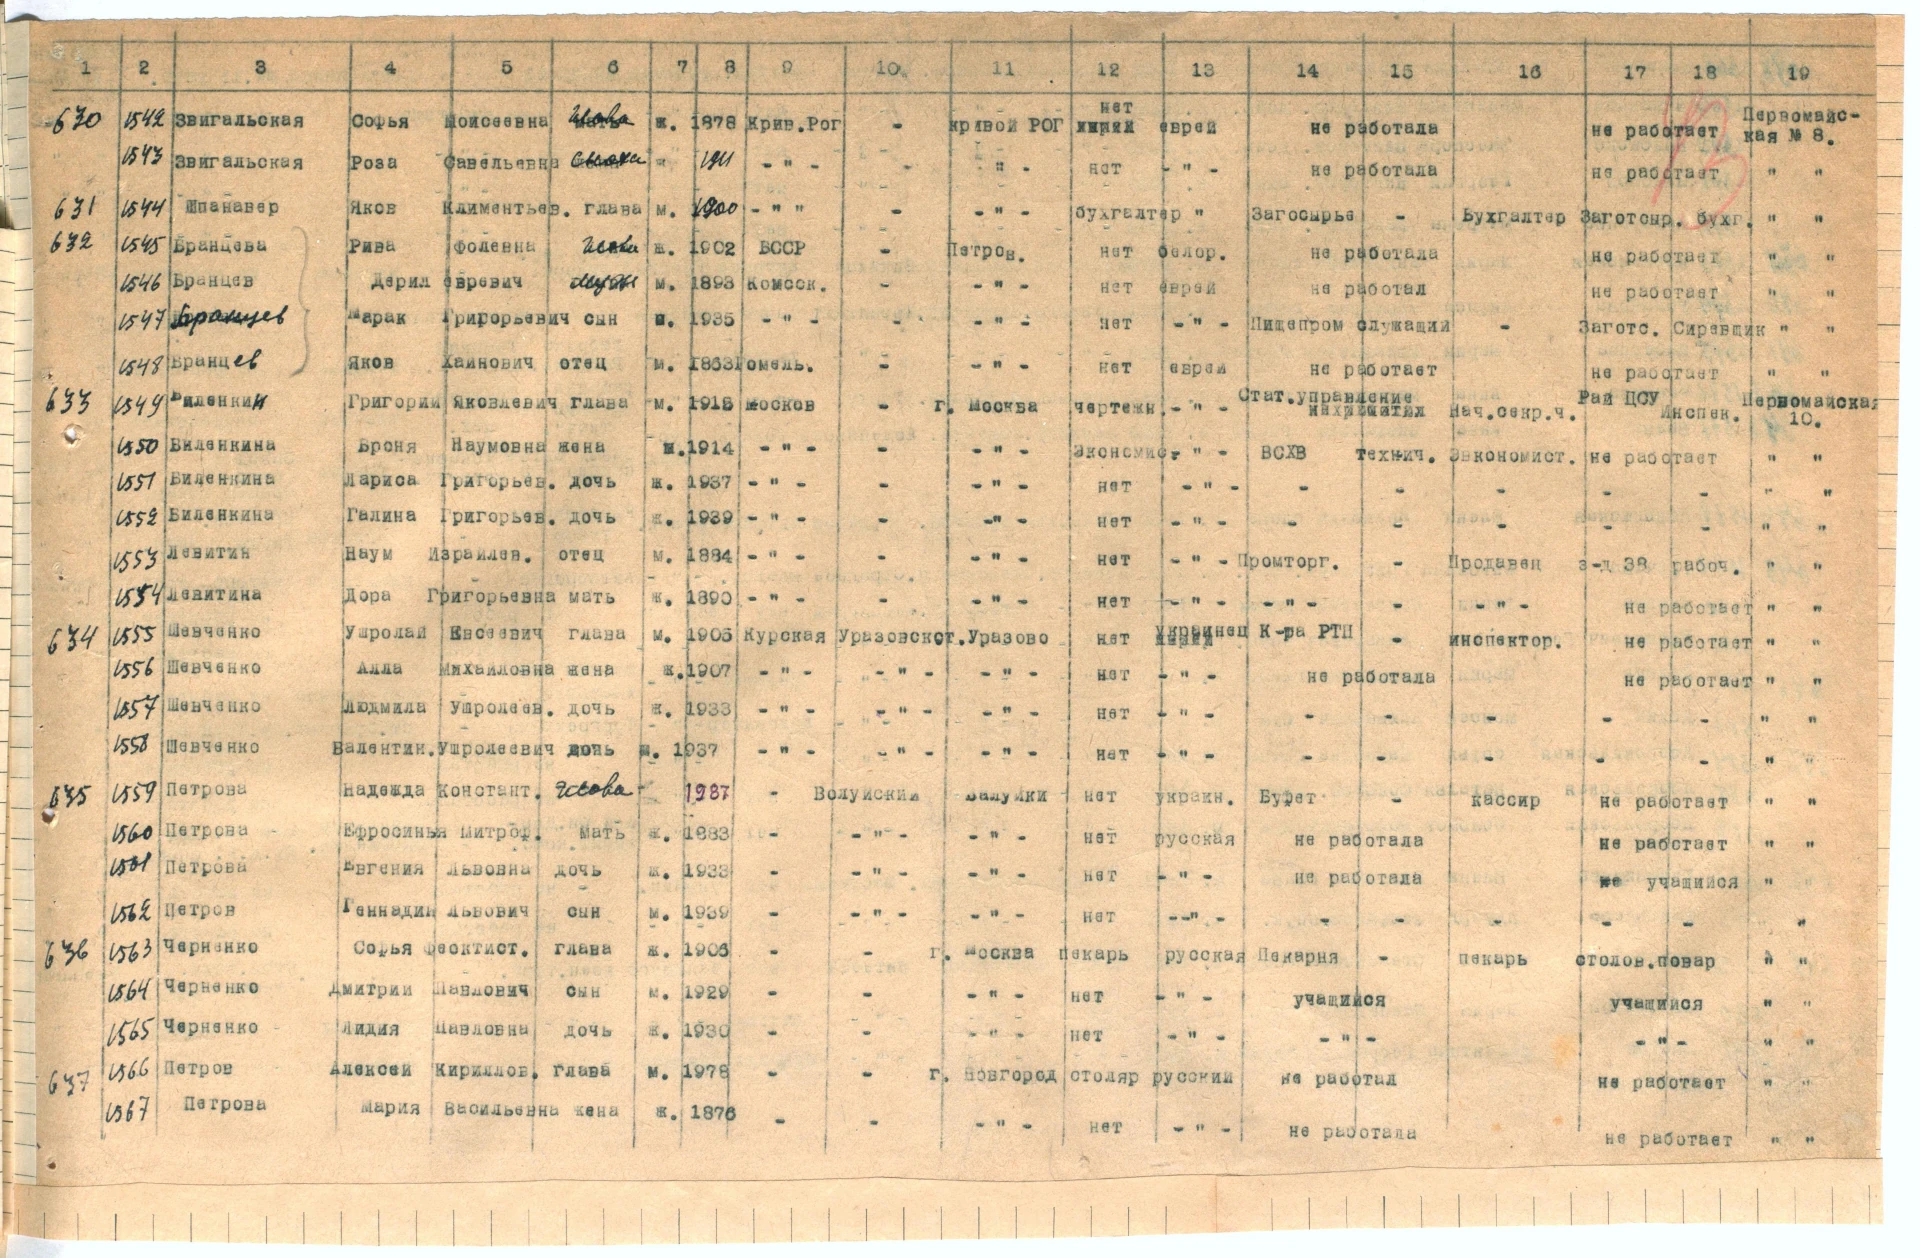 1 2 3 4 5 6 7 8 9 10 11 12 13 14 15 16 17 18 19
630 1542 Звигальская Софья Моисеевна глава ж. 1878 Крив.Рог - кривой РОГ нет еврей не работала не работает Первомайс-кая № 8.
1543 Звигальская Роза Савельевна ж 1911 - " - - " - нет - " - не работала не работает " "
631 1544 Шпанавер Яков Климентьев. глава м. 1900 - " " - - " - бухгалтер " Загосырье - Бухгалтер Заготсыр. бухг. " "
632 1545 Бранцева Рива фолевна глава ж. 1902 БССР - Петров. нет белор. не работала не работает " "
1546 Бранцев Дерил евревич муж м. 1893 Комсск. - - " - нет еврей не работал не работает " "
1547 Бранцев Марак Григорьевич сын м. 1935 - " - - - " - нет - " - Пищепром служащий - Заготс. Сиревщик " "
1548 Бранцев Яков Хаинович отец м. 1863 Гомель. - - " - нет еврей не работает не работает " "
633 1549 Виленкин Григорий Яковлевич глава м. 1912 Москов - г. Москва чертежн. - " - Стат.управление Нач.секр.ч. Рай ЦСУ Инспек. Первомайская 10.
1550 Виленкина Броня Наумовна жена ж. 1914 - " - - - " - Экономис. - " - ВСХВ технич. Эвкономист. не работает " "
1551 Виленкина Лариса Григорьев. дочь ж. 1937 - " - - - " - нет - " - - - - - - " "
1552 Виленкина Галина Григорьев. дочь ж. 1939 - " - - -" - нет - " - - - - - - " "
1553 Левитин Наум Израилев. отец м. 1884 - " - - - " - нет - " - Промторг. - Продавец з-д 38 рабоч. " "
1554 Левитина Дора Григорьевна мать ж. 1890 - " - - - " - нет - " - - " - - - " - не работает " "
634 1555 Шевченко Ушролай Евсеевич глава м. 1905 Курская Уразовскст. Уразово нет украинец К-ра РТП - инспектор. не работает " "
1556 Шевченко Алла Михайловна жена ж. 1907 - " - - " - - " - нет - " - не работала не работает " "
1557 Шевченко Людмила Ушролеев. дочь ж. 1933 - " - - " - - " - нет - " - - - - - - " "
1558 Шевченко Валентин. Ушролеевич дочь м. 1937 - " - - " - - " - нет - " - - - - - - " "
635 1559 Петрова Надежда Констант. глава 1987 - Волуйский Валуйки нет украин. Буфет - кассир не работает " "
1560 Петрова Ефросинья Митроф. мать ж. 1883 - - " - - " - нет русская не работала не работает " "
1561 Петрова Евгения Львовна дочь ж. 1933 - - " - - " - нет - " - не работала учащийся "
1562 Петров Геннадий Львович сын м. 1939 - - " - - " - нет --"- - - - - - "
636 1563 Черненко Софья Феоктист. глава ж. 1906 - - г. Москва пекарь русская Пекарня - пекарь столов.повар " "
1564 Черненко Дмитрий Павлович сын м. 1929 - - - " - нет - " - учащийся учащийся " "
1565 Черненко Лидия Павловна дочь ж. 1930 - - - " - нет - " - - " - - " - " "
637 1566 Петров Алексей Кириллов. глава м. 1978 - - г. Новгород столяр русский не работал не работает " "
1567 Петрова Мария Васильевна жена ж. 1876 - - - " - нет - " - не работала не работает " "